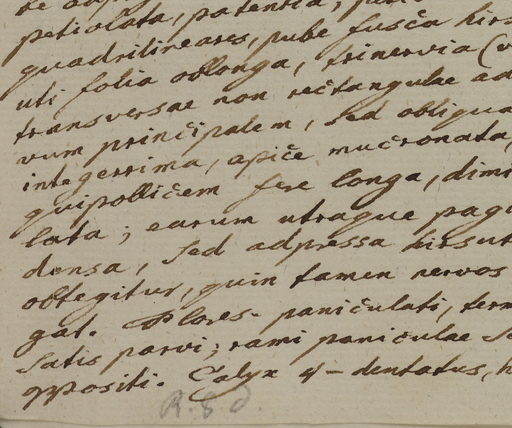 petiolata, patentia,
quadrilineares, pube fusca hirs
uti folia oblonga, trinervia (v
transversae non rectangulae ad
vum principalem, sed obliqua
integerrima, apice mucronata,
quipollicem fere longa, dimi
lata; earum utraque pagi
densa, sed adpressa hirsut
obtegitur, quin tamen nervos
gat. Flores paniculati, term
satis parvi; rami paniculae
oppositi. Calyx 4-dentatus, h
R. & d.